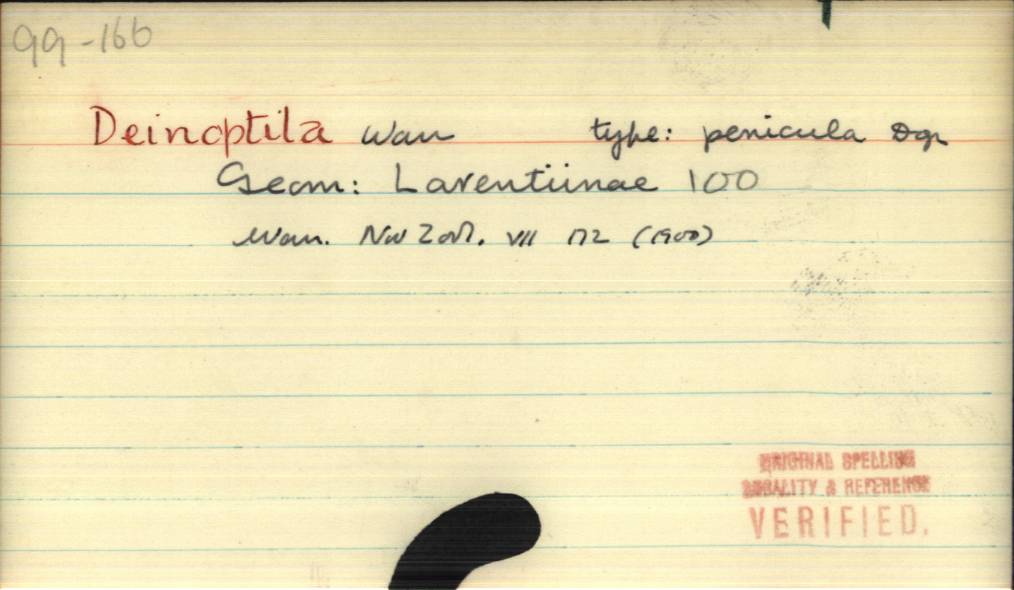 99-166
Deinoptila Warr type: penicula Dgn
Geom: Larentiinae 100
Warr. Nov Zool. VII 172 (1900)
ORIGINAL SPELLING
LOCALITY & REFERENCE
VERIFIED.